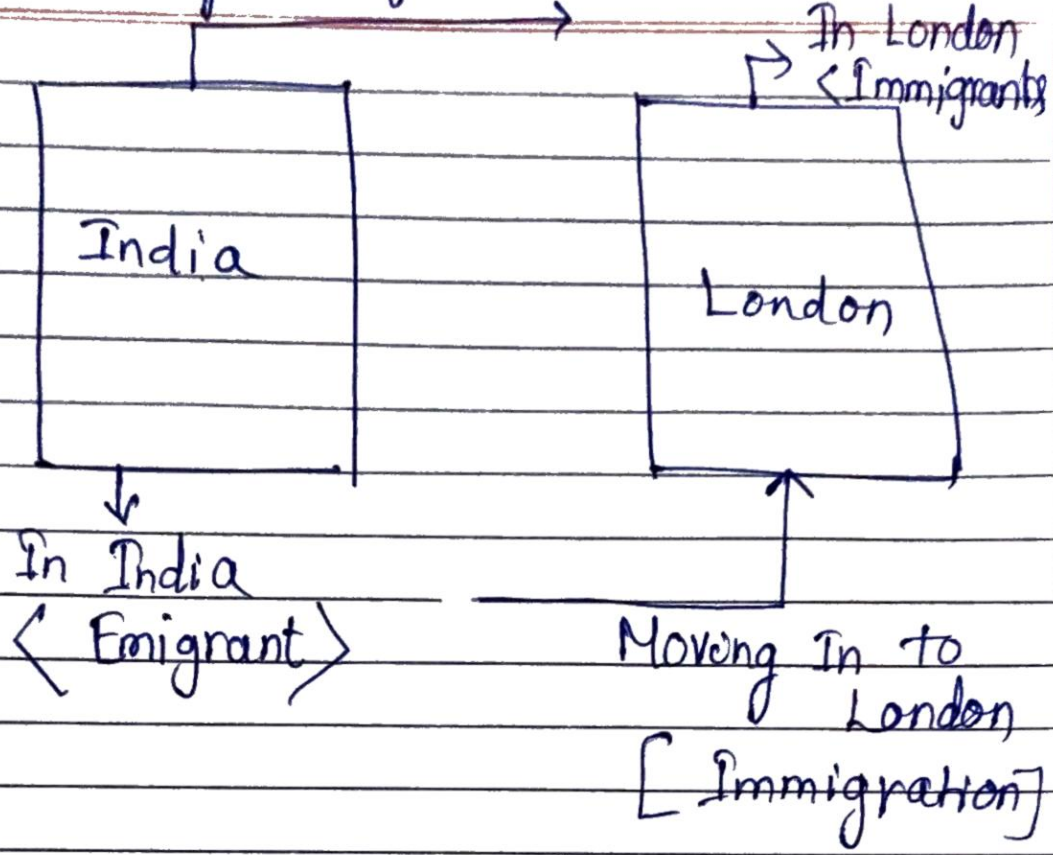 In London
<Immigrants
India
London
In India
< Emigrant >
Moving In to
London
[ Immigration]